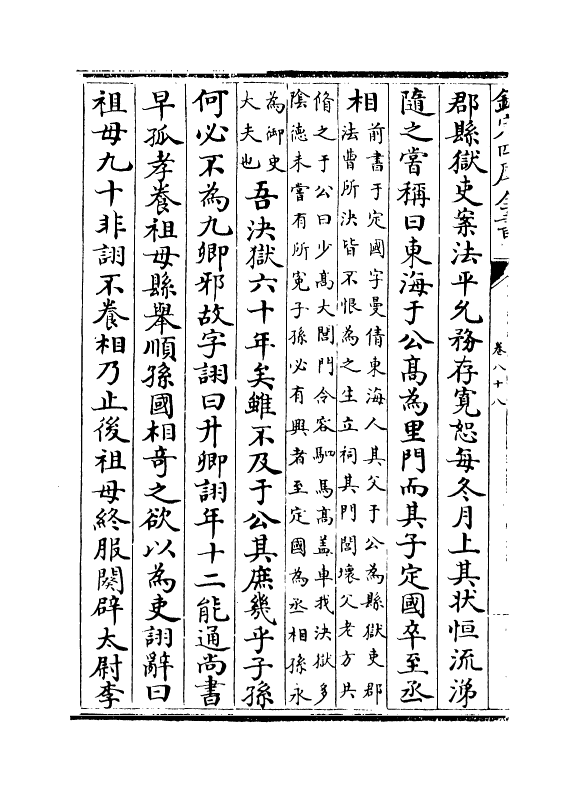 欽定四庫全書
卷八十八
郡縣獄吏案法平允務存寛恕每冬月上其狀恒流涕
隨之嘗稱曰東海于公髙為里門而其子定國卒至丞
相
前書于定國字曼倩東海人其父于公為縣獄吏郡
法曹所決皆不恨為之生立祠其門閭壞父老方共
脩之于公曰少髙大閭門令容駟馬髙盖車我決獄多
陰徳未嘗有所寃子孫必有興者至定國為丞相孫永
為御史
大夫也
吾決獄六十年矣雖不及于公其庶幾乎子孫
何必不為九卿邪故字詡曰升卿詡年十二能通尚書
早孤孝養祖母縣舉順孫國相奇之欲以為吏詡辭曰
祖母九十非詡不養相乃止後祖母終服闋辟太尉李